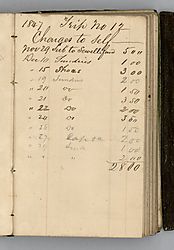 1867 Trip No 17
Charges to Self
Nov 29 Sub to Sewell fund 5 00
Dec 10 Sundries 1 00
" 15 Shoes 3 00
" 19 Sundries 2 00
" 20 Do 1 00
" 21 Do 3 00
" 22 Do 2 00
" 24 Do 3 00
" 26 Do 1 50
" 27
" 31
2 00
28 00